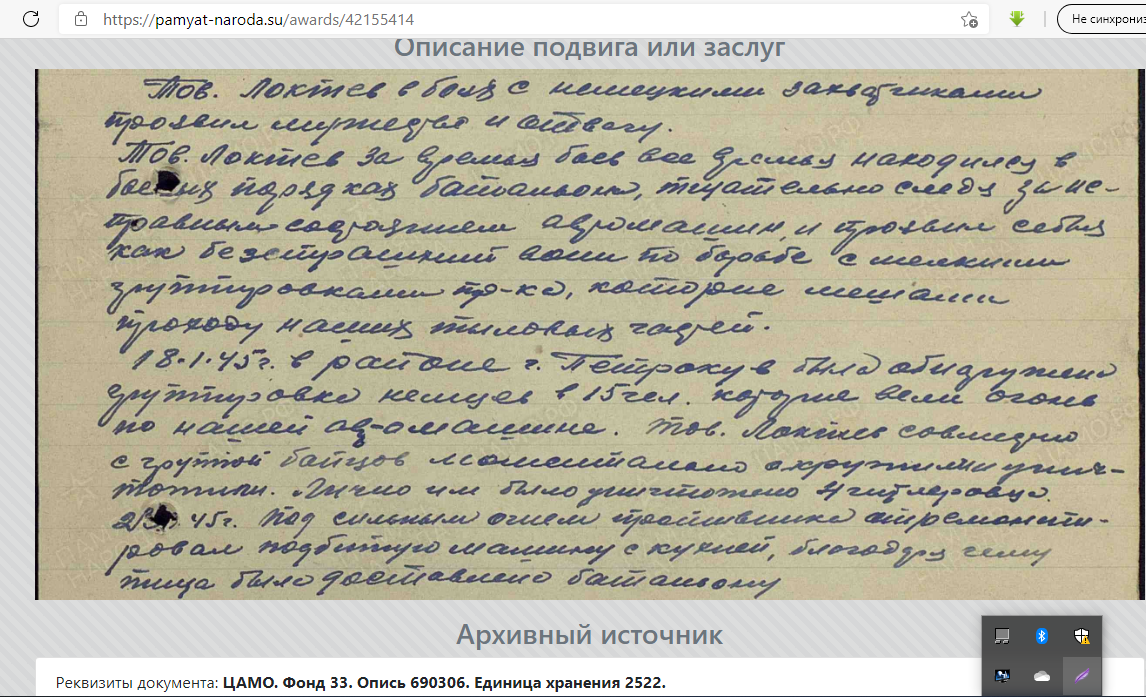 https://pamyat-naroda.su/awards/42155414
Не синхрониз
Описание подвига или заслуг
Тов. Локтев в боях с немецкими захватчиками
проявил мужество и отвагу.
Тов. Локтев за время боев все время находился в
боевых порядках батальона, тщательно следя за ис-
правным содержанием автомашин, и проявил себя
как безстрашный воин по борьбе с мелкими
группировками пр-ка, которые мешали
проходу наших тыловых частей.
18.1.45г. в районе г. Петроков была обнаружена
группировка немцев в 15 чел. которые вели огонь
по нашей автомашине. Тов. Локтев совместно
с группой бойцов моментально окружили и унич-
тожили. Лично им было уничтожено 4 гитлеровца.
45г. Под сильным огнем противника отремонти-
ровал подбитую машину с кухней, благодаря чему
пища было доставлено батальону
Архивный источник
Реквизиты документа: ЦАМО. Фонд 33. Опись 690306. Единица хранения 2522.